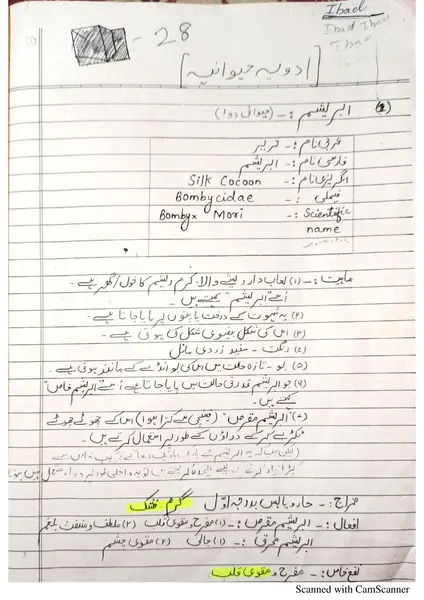 Ibad
Ibad Ibad
Ibad
- 28
[ادویہ حیوانیہ]
(2) ابریشم :- (حیوانی دوا)
عربی نام :- حریر
فارسی نام :- ابریشم
انگریزی نام :- Silk Cocoon
فیملی :- Bombycidae
Scientific :- Bombyx Mori
name
ماہیت :- (1) لعاب دار ریشے والا کرم ریشم کا خول/گھر ہے۔
اُسے ابریشم کہتے ہیں۔
(2) یہ شہوت کے درخت یا پتوں پر پایا جاتا ہے۔
(3) اس کی شکل بیضوی شکل کی ہوتی ہے۔
(4) رنگت - سفید زردی مائل
(5) بو - تازہ حالت میں اس کی بو انڈے کے مانند ہوتی ہے۔
(6) جو ابریشم قدرتی حالت میں پایا جاتا ہے اُسے "ابریشم خام"
کہتے ہیں۔
(7) "ابریشم مقرض" (قینچی سے کترا ہوا) اس کے چھوٹے چھوٹے
ٹکڑے کر کے دواؤں کے طور پر استعمال کرتے ہیں۔
مزاج :- حار یابس بدرجہ اوّل گرم خشک
افعال :- ابریشم مقرض :- (1) مفرح و مقوی قلب (2) ملطف و منفث بلغم
ابریشم محرق :- (1) جالی (2) مقوی چشم
نفع خاص :- مفرح و مقوی قلب
Scanned with CamScanner